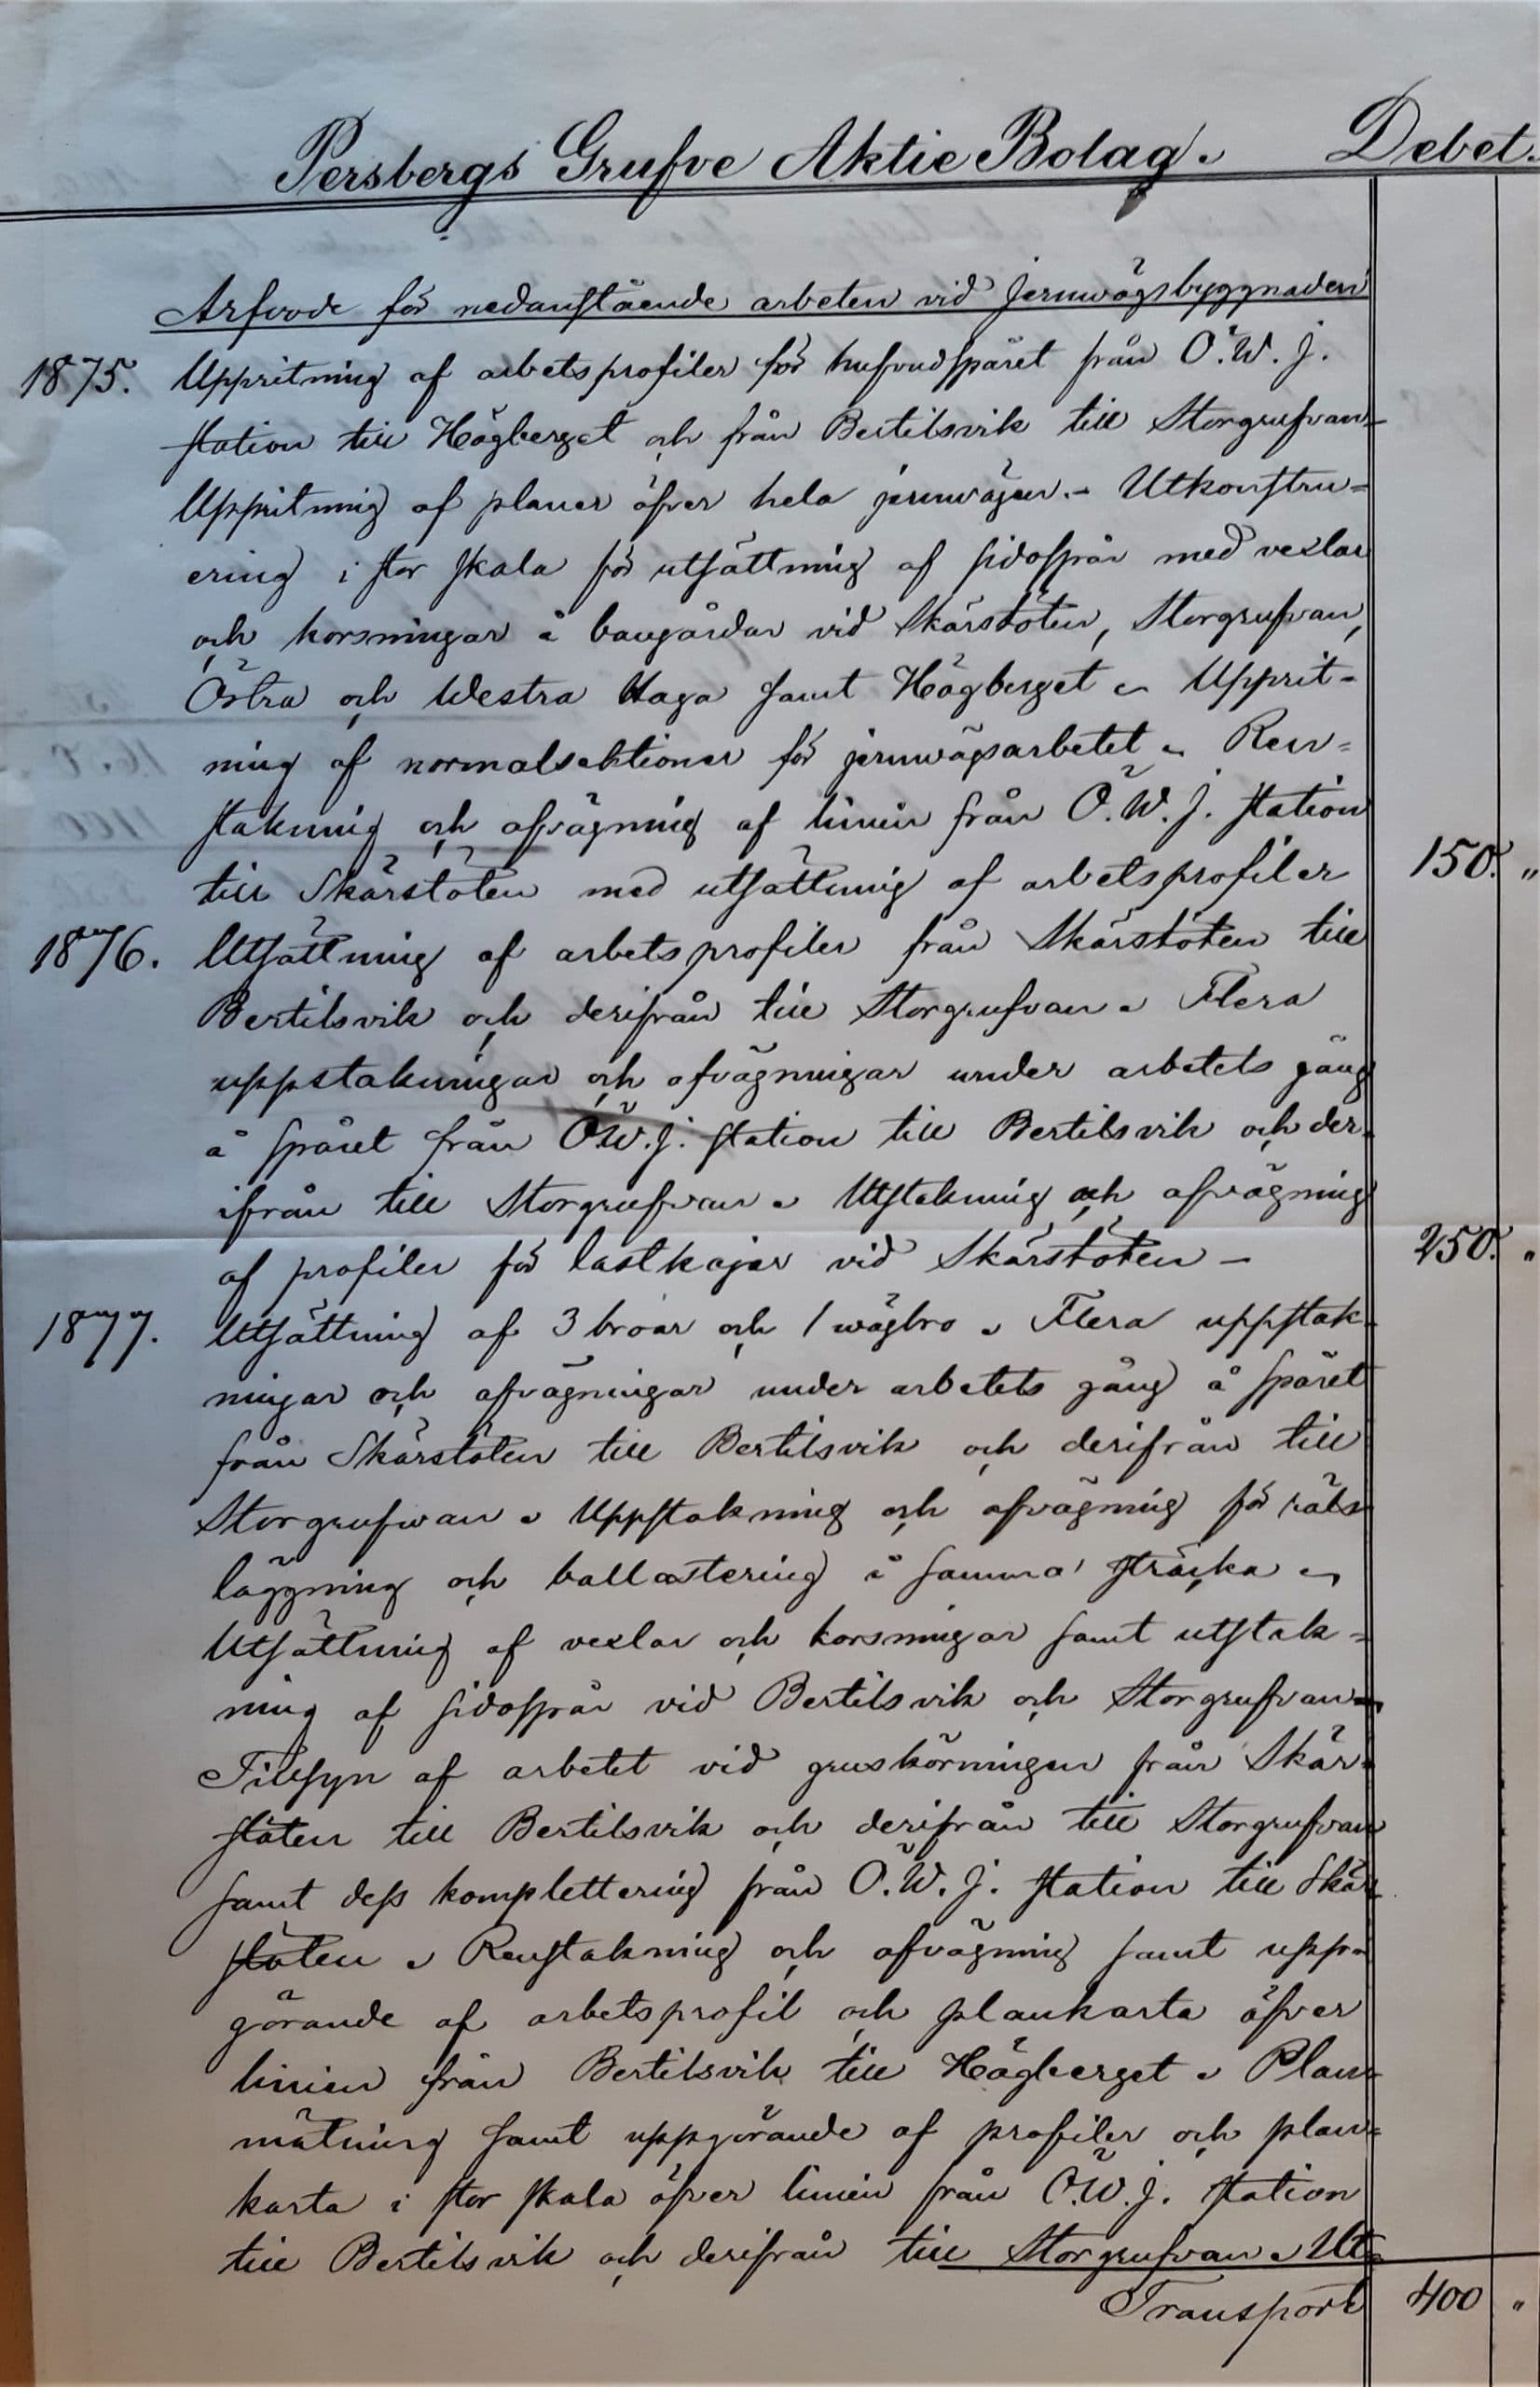 Persbergs Grufve Aktie Bolag. Debet.
Arfvode för nedanstående arbeten vid jernvägsbyggnaden
1875. Uppritning af arbetsprofiler för hufvudspåret från Ö.W.J.
station till Högberget och från Bertilsvik till Storgrufvan-
Uppritning af planer öfver hela jernvägen.- Utkonstru=
ering i stor skala för utsättning af sidospår med vexlar
och korsningar å bangårdar vid Skärstöten, Storgrufvan,
Östra och Westra Haga samt Högberget - Upprit-
ning af normalsektioner för jernvägsarbetet - Ren=
stakning och afvägning af linien från Ö.W.J. station
till Skärstöten med utsättning af arbetsprofiler 150. "
1876. Utsättning af arbetsprofiler från Skärstöten till
Bertilsvik och derifrån till Storgrufvan - Flera
uppstakningar och afvägningar under arbetets gång
å spåret från Ö.W.J. station till Bertilsvik och der-
ifrån till Storgrufvan - Utstakning och afvägning
af profiler för lastkajer vid Skärstöten - 250. "
1877. Utsättning af 3 broar och 1 vägbro - Flera uppstak-
ningar och afvägningar under arbetets gång å spåret
från Skärstöten till Bertilsvik och derifrån till
Storgrufvan - Uppstakning och afvägning för räls
läggning och ballastering å samma sträcka -
Utsättning af vexlar och korsningar samt utstak=
ning af sidospår vid Bertilsvik och Storgrufvan -
Tillsyn af arbetet vid gruskörningen från Skär-
stöten till Bertilsvik och derifrån till Storgrufvan
samt dess komplettering från Ö.W.J. station till Skär
stöten - Renstakning och afvägning samt upp-
görande af arbetsprofil och plankarta öfver
linien från Bertilsvik till Högberget - Plan-
mätning samt uppgörande af profiler och plan=
karta i stor skala öfver linien från Ö.W.J. station
till Bertilsvik och derifrån till Storgrufvan - Ut-
Transport 400 "